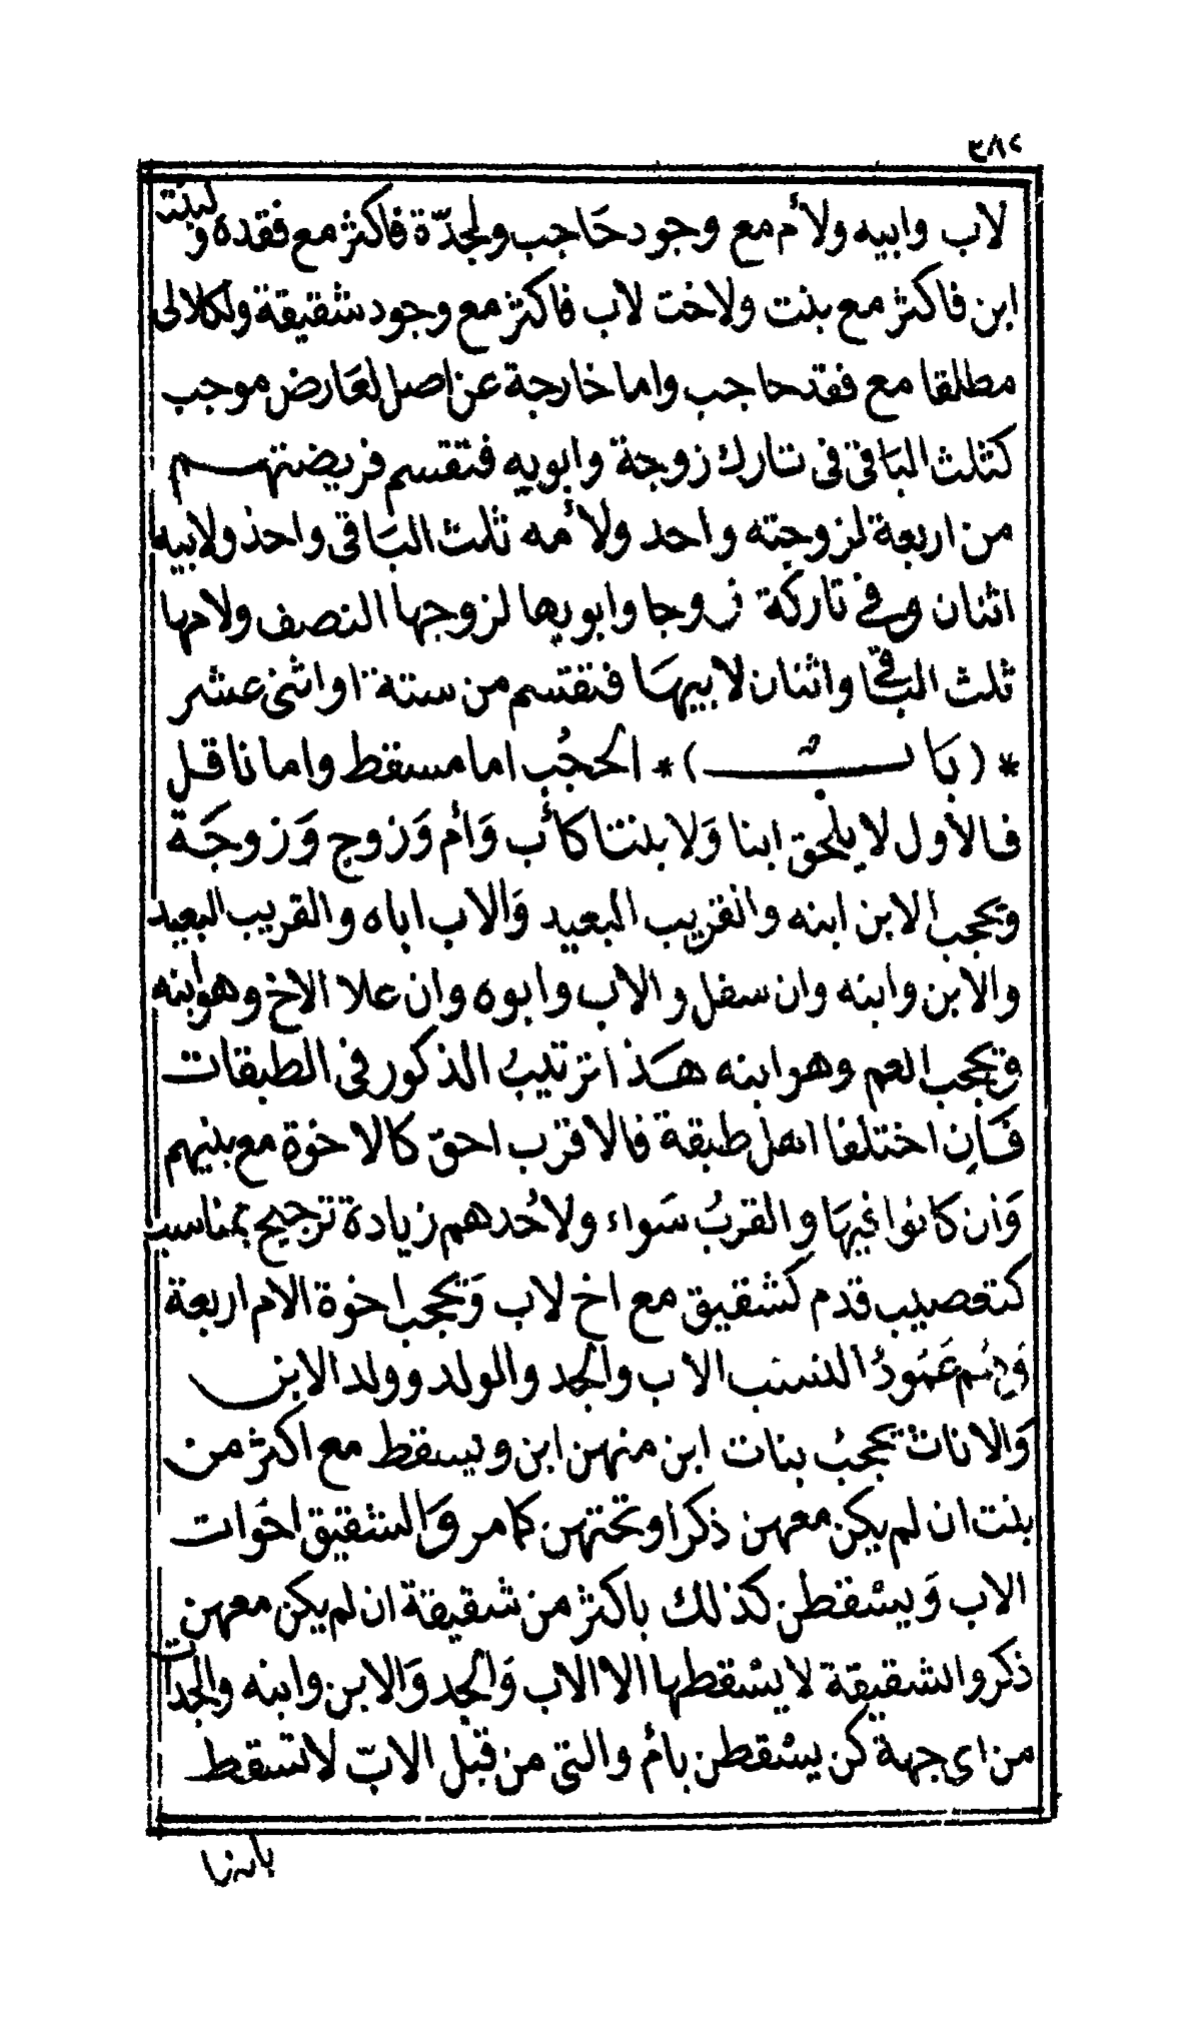 ٣٨٢
لاب وابيه ولأم مع وجود حَاجب ولجدّة فاكثر مع فقده ولبنت
ابن فاكثر مع بنت ولاخت لاب فاكثر مع وجود شقيقة ولكلالى
مطلقا مع فقد حاجب واما خارجة عن اصل لعَارض موجب
كثلث البَاقى فى تارك زوجة وابويه فتقسم فريضتهم
من اربعة لزوجته واحد ولأمه ثلث البَاقى واحد ولابيه
اثنان وفي تاركة زوجا وابويها لزوجها النصف ولامها
ثلث البَاقي واثنان لابيهَا فتقتسم من ستة او اثنى عشر
* (بَابٌ) * الحجُب اما مسقط واما ناقل
فالاول لا يلحق ابنا وَلا بنتا كأب وَأم وَزوج وَزوجَة
ويحجب الابن ابنه والقريب البعيد وَالاب اباه والقريب البعيد
والابن وابنه وان سفل والاب وابوه وان علا الاخ وهو ابنه
ويحجب العم وهو ابنه هَذا ترتيبُ الذكور فى الطبقات
فَان اختلفا اهل طبقة فالاقرب احقّ كالاخوة مع بنيهم
وَان كانوا غيرهَا والقربُ سَواء ولاحُدهم زيادة ترجيح بمناسب
كتعصيب قدم كشقيق مع اخ لاب وَيحجب اخوة الام اربعة
وَهُم عَمُودُ النسَب الاب والجد والولد وولد الابن
وَالاناث يحجبُ بنات ابن منهن ابن ويسقط مع اكثر من
بنت ان لم يكن معهن ذكرا وتحتهن كما مر وَالشقيق اخَوات
الاب وَيسْقطن كذلك باكثر من شقيقة ان لم يكن معهن
ذكر والشقيقة لا يسْقطها الا الاب وَالجد وَالابن وابنه والجدات
من اى جهة كن يسْقطن بامٌ والتى من قبل الابّ لا تسقط
بابنها